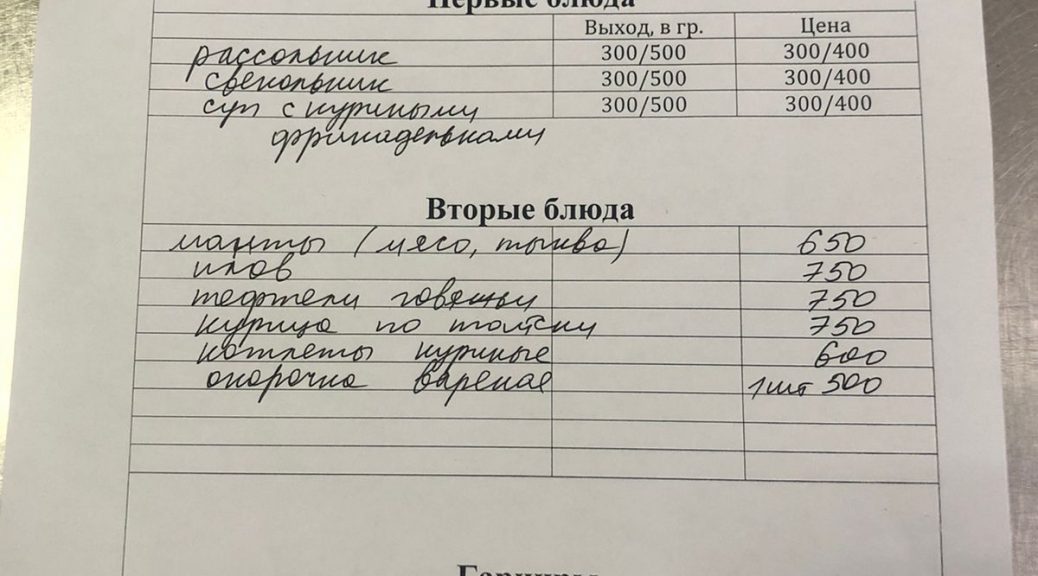 Первые блюда
Выход, в гр. Цена
рассольник 300/500 300/400
свекольник 300/500 300/400
суп с куриными 300/500 300/400
фрикадельками
Вторые блюда
манты (мясо, тыква) 650
плов 750
тефтели говяжьи 750
курица по тайски 750
котлеты куриные 600
окорочка вареная 1шт 500
Гарниры